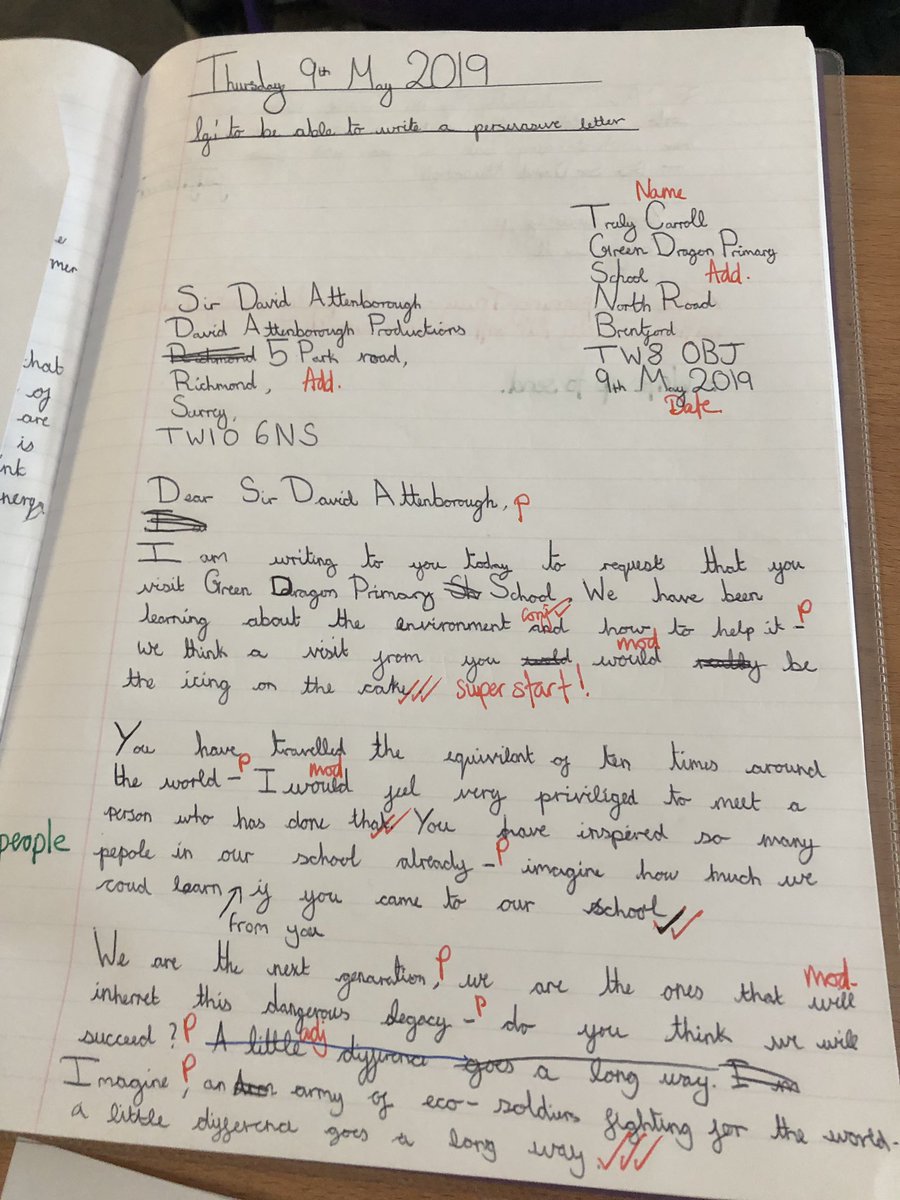 Thursday 9th May 2019
lqi to be able to write a persuasive letter
Name
Truly Carroll
Green Dragon Primary
School Add.
North Road
Brentford
TW8 0BJ
9th May 2019
Date
Sir David Attenborough
David Attenborough Productions
Richmond 5 Park road,
Richmond, Add.
Surrey,
TW10 6NS
Dear Sir David Attenborough, P
I am writing to you today to request that you
visit Green Dragon Primary School. We have been
learning about the environment and how to help it - P
we think a visit from you would mod be
the icing on the cake super start!
You have travelled the equivilent of ten times around
the world - P I would mod feel very priviliged to meet a
person who has done that. You have inspéred so many
people
pepole in our school already - P imagine how much we
coud learn from you if you came to our school.
We are the next genaration, P we are the ones that will mod
inherret this dangerous legacy - P do you think we will
succeed? P A little adj dyfference goes a long way. I
Imagine P, an army of eco-soldiers fighting for the world-
a little difference goes a long way.
e
mer
that
of
are
is
ink
energy